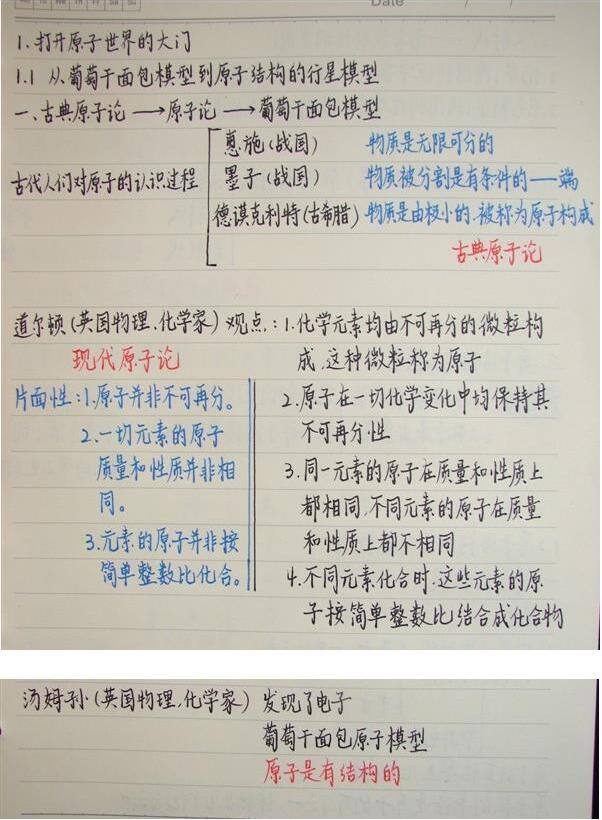 Date / /
1.打开原子世界的大门
1.1 从葡萄干面包模型到原子结构的行星模型
一、古典原子论→原子论→葡萄干面包模型
古代人们对原子的认识过程
惠施(战国) 物质是无限可分的
墨子(战国) 物质被分割是有条件的——端
德谟克利特(古希腊) 物质是由极小的、被称为原子构成
古典原子论
道尔顿(英国物理、化学家)观点:1.化学元素均由不可再分的微粒构
成,这种微粒称为原子
现代原子论
2.原子在一切化学变化中均保持其
不可再分性
3.同一元素的原子在质量和性质上
都相同,不同元素的原子在质量
和性质上都不相同
4.不同元素化合时,这些元素的原
子按简单整数比结合成化合物
片面性:1.原子并非不可再分。
2.一切元素的原子
质量和性质并非相
同。
3.元素的原子并非按
简单整数比化合。
汤姆孙(英国物理、化学家) 发现了电子
葡萄干面包原子模型
原子是有结构的